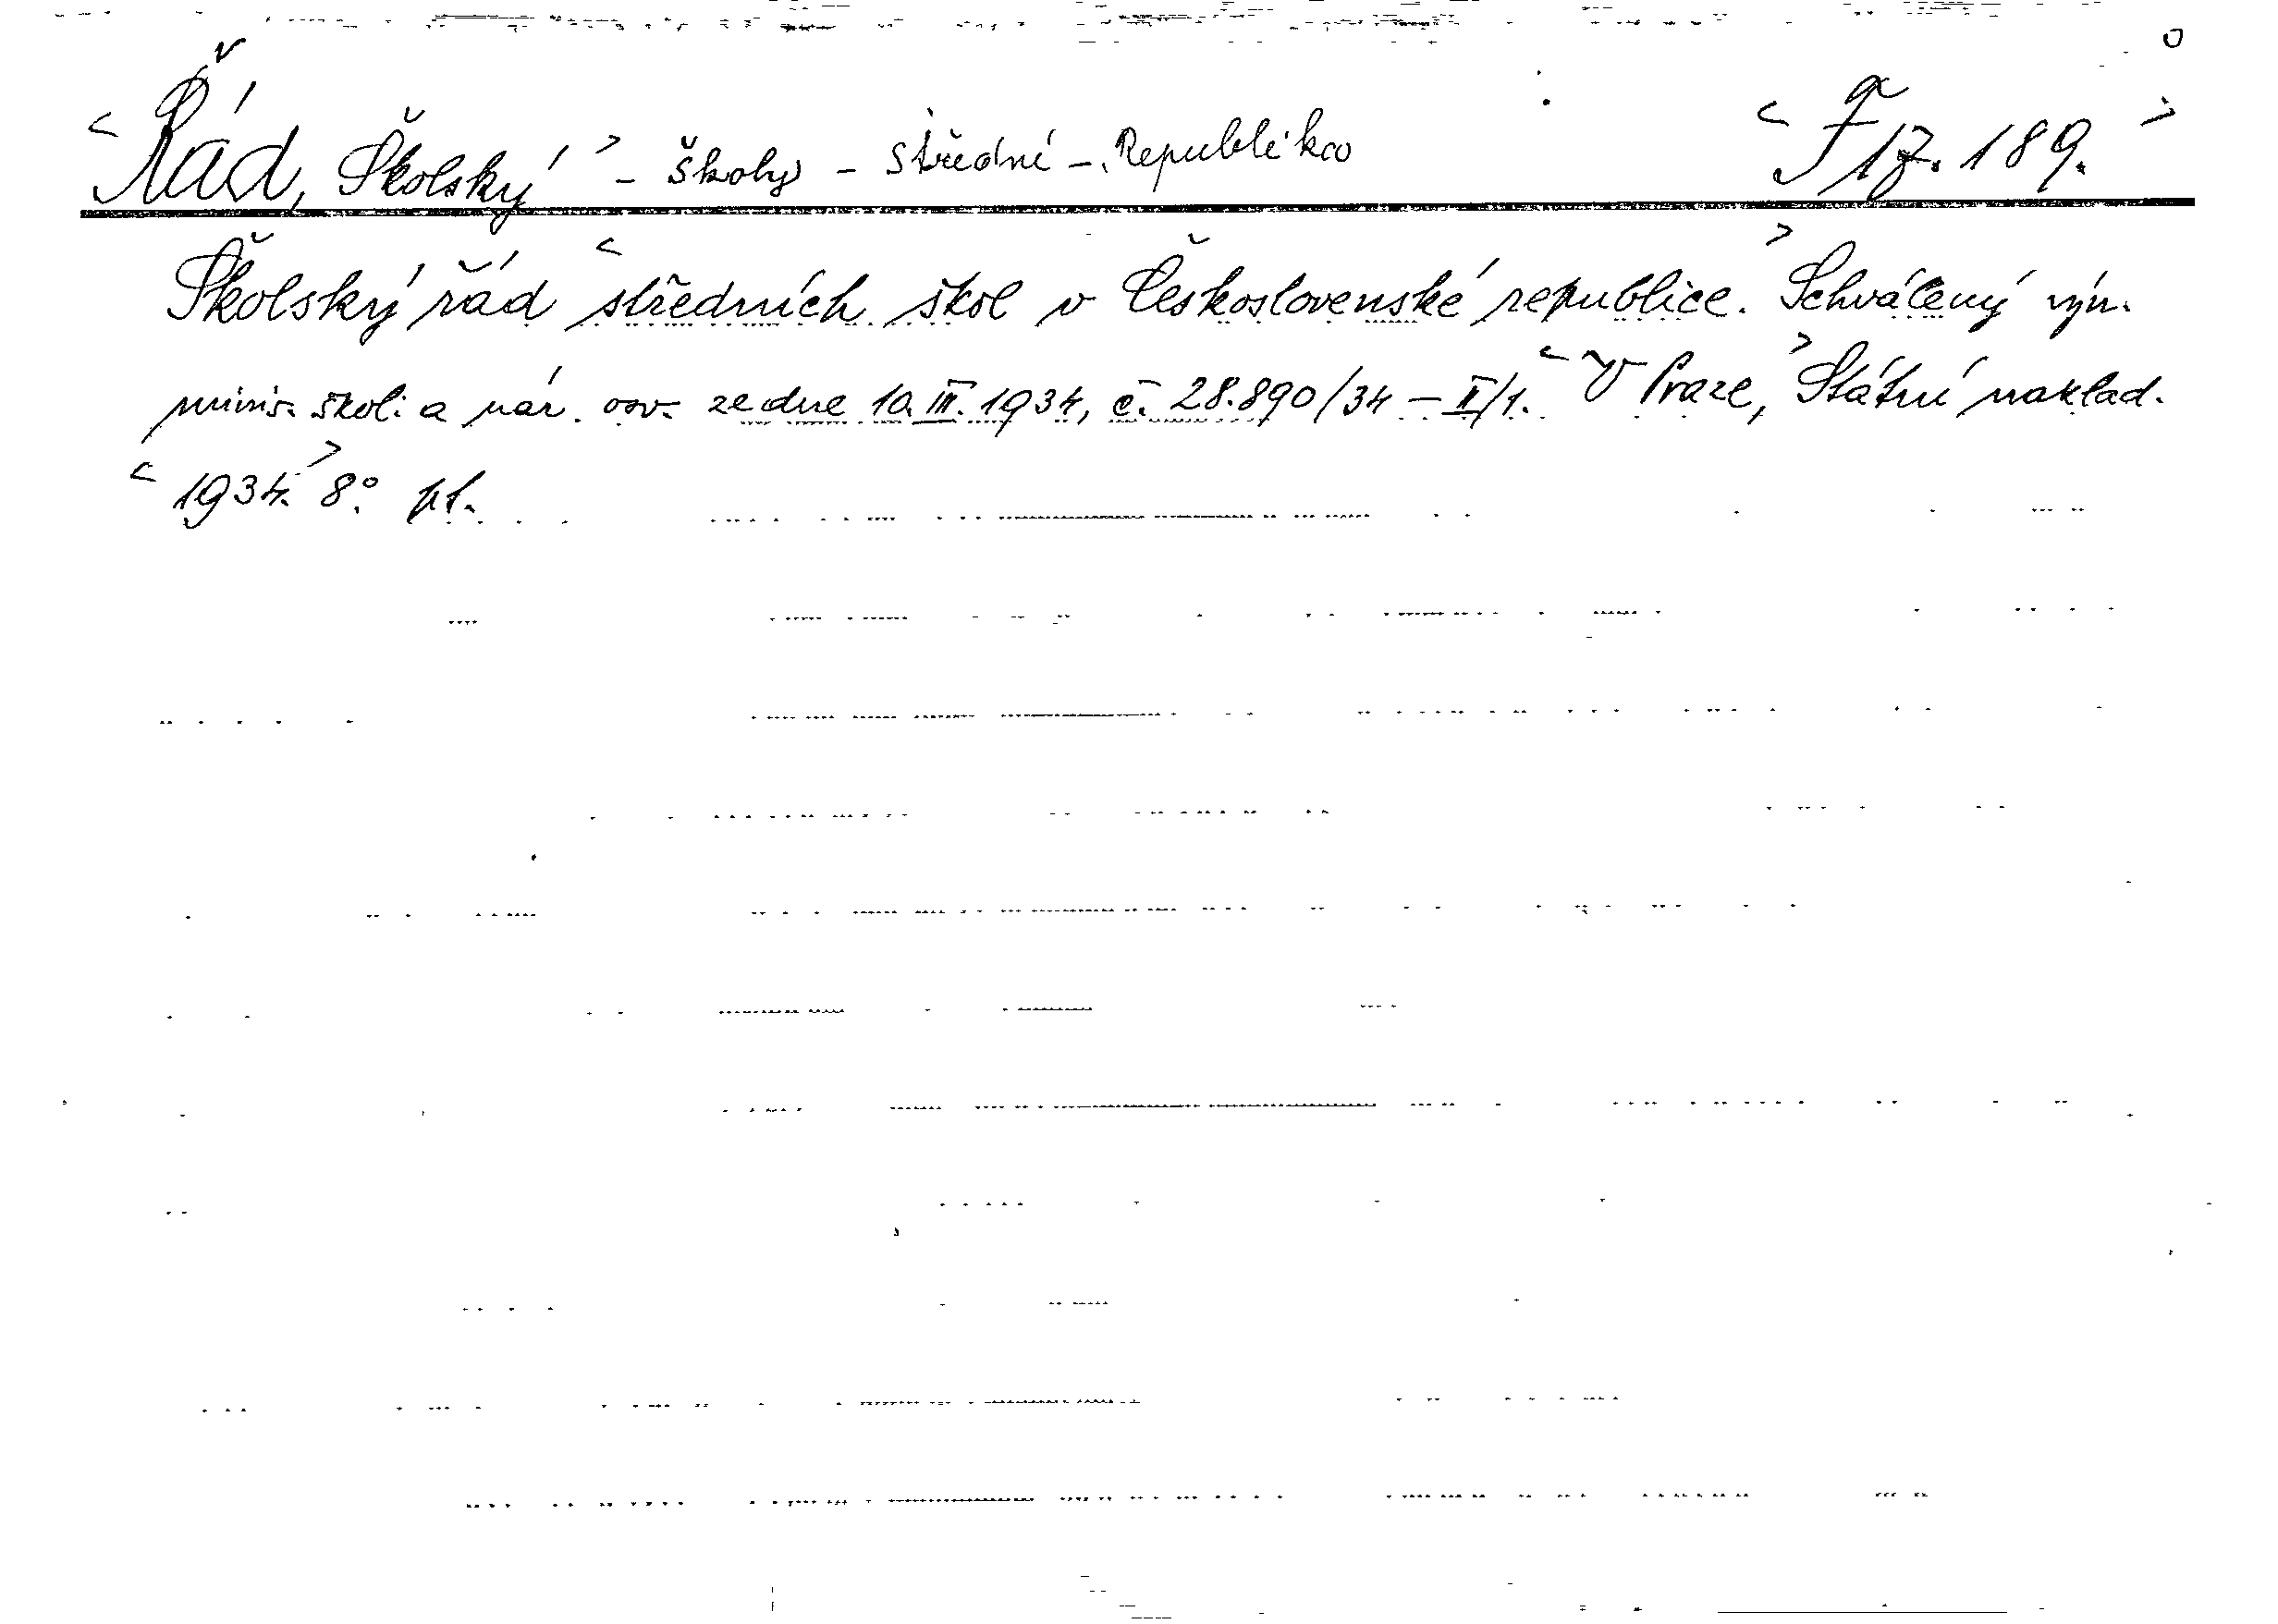 < Řád, Školský > - školy - střední - Republika < F 17.189. >
Školský řád < středních škol v Československé republice. > Schválený výn.
minis. škol. a nár. osv. ze dne 10. III. 1934, č. 28.890/34 – II/1. < V Praze, > Státní naklad.
< 1934. > 8°. pf.